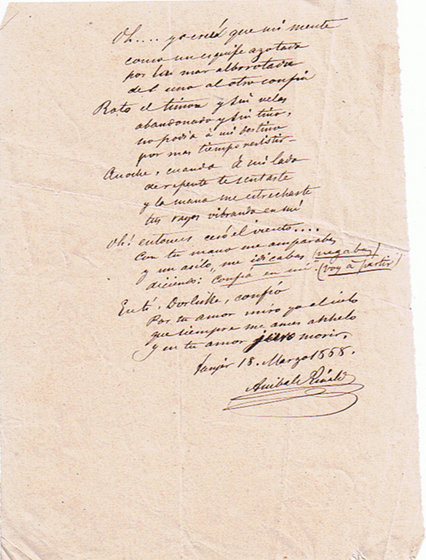 Oh.... yo creía que mi mente
como un esquife azotado
por la mar alborotada
del uno al otro confin
Roto el timon y sin velas
abandonado y sin tino,
no podia á mi destino
por mas tiempo resistir.
Anoche, cuando á mi lado
de repente te sentaste
y la mano me estrechaste
tus rayos vibrando en mi
Oh! entonces cesó el viento....
Con tu mano me amparabas
y un asilo, me idicabas (negabas)
diciendo: Confia en mi (voy á partir)
En tí, confio
Por tu amor miro ya al cielo
que siempre me ames anhelo
y en tu amor juro morir.
Tanjer 18. Marzo 1888.
Anibal Rinaldi